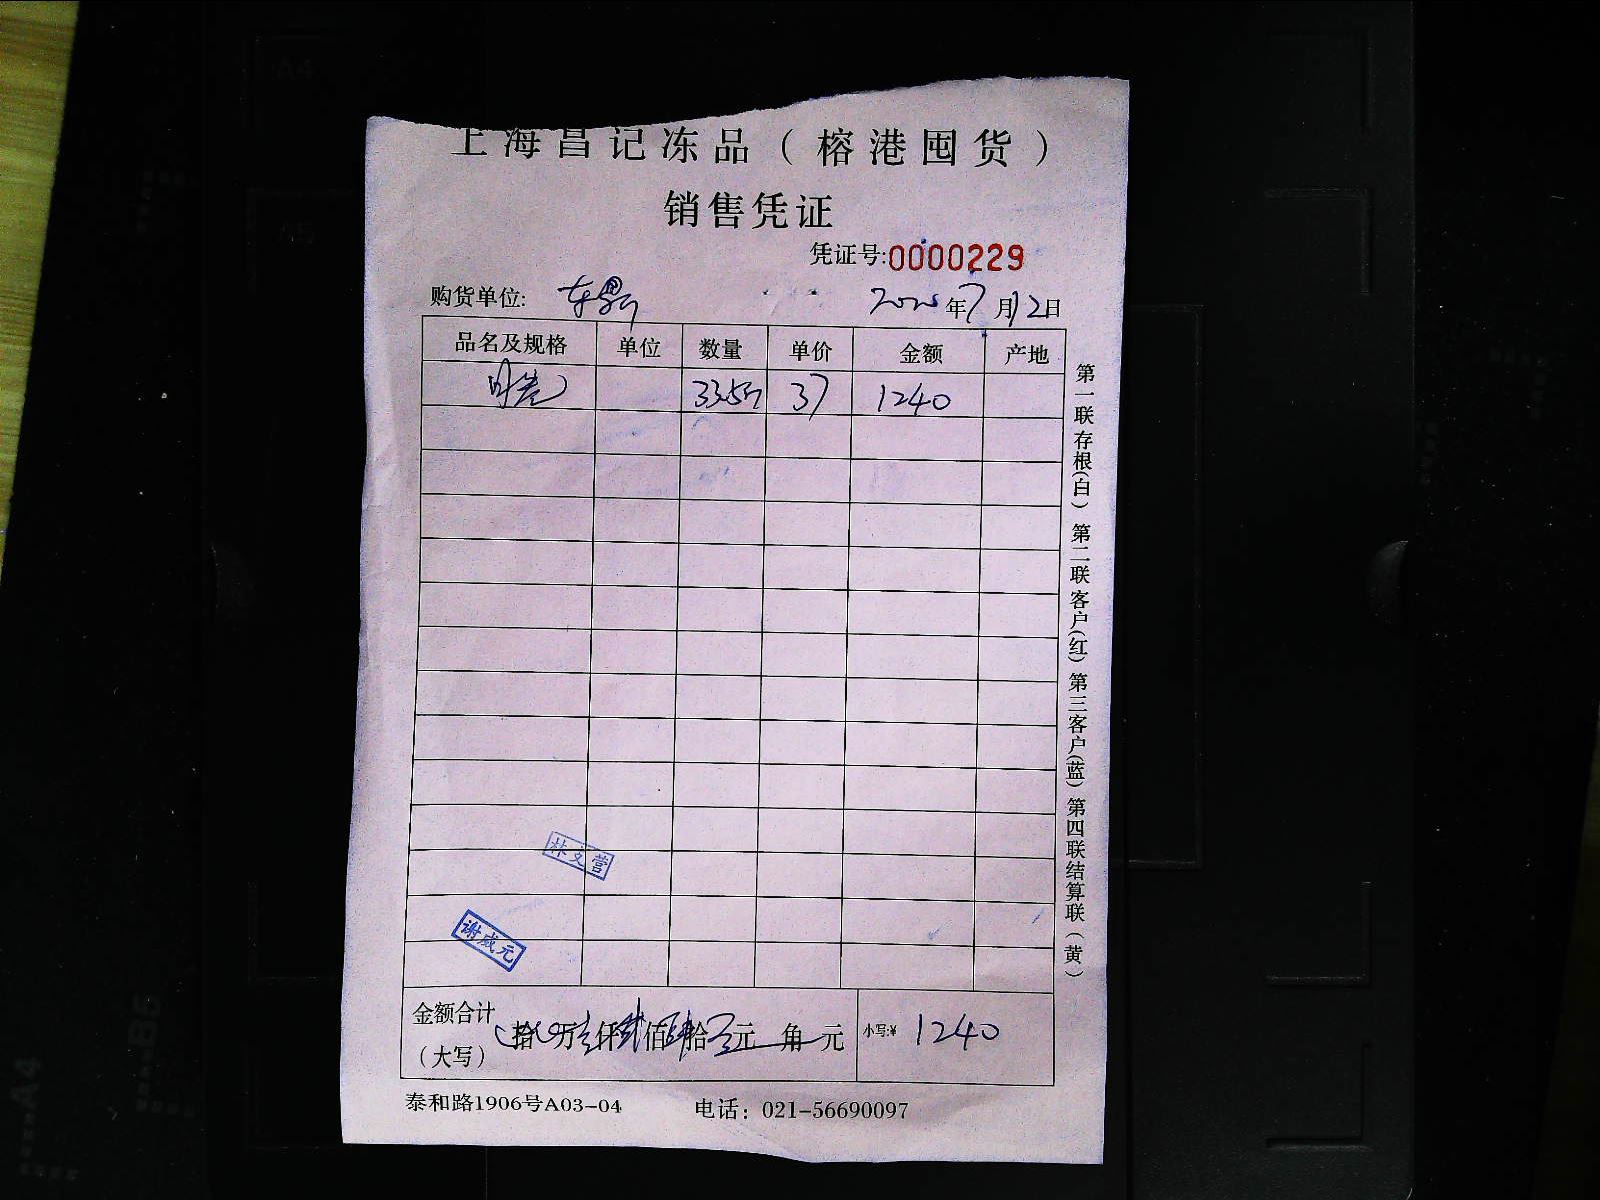 上海昌记冻品（榕港囤货）
销售凭证
凭证号:0000229
购货单位: 东 2020年7月12日
品名及规格 单位 数量 单价 金额 产地
33.5 37 1240
林文营
谢成元
金额合计（大写） 拾 万壹仟贰佰肆拾 元 角 元 小写:¥ 1240
泰和路1906号A03-04 电话：021-56690097
第一联存根(白) 第二联客户(红) 第三客户(蓝) 第四联结算联(黄)